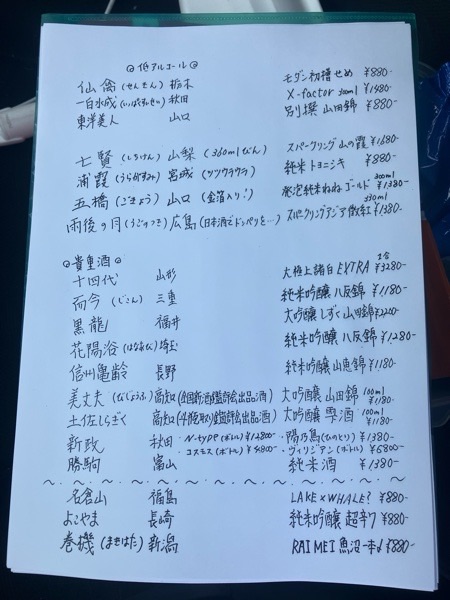 ◎低アルコール◎
仙禽(せんきん) 栃木 モダン初槽せめ ¥880-
一白水成(いっぱくすいせい) 秋田 X-factor 300ml ¥1480-
東洋美人 山口 別撰 山田錦 ¥880-
七賢(しちけん) 山梨(360mlびん) スパークリング 山の霞 ¥1680-
浦霞(うらがすみ) 宮城 純米 トヨニシキ ¥880-
五橋(ごきょう) 山口(金箔入り!) 発泡純米ねね ゴールド 300ml ¥1380-
雨後の月(うごのつき) 広島(日本酒で) スパークリング 330ml ¥1380-
◎貴重酒◎
十四代 山形 大極上諸白 EXTRA 1合 ¥3280-
而今(じこん) 三重 純米吟醸 八反錦 ¥1180-
黒龍 福井 大吟醸 しずく 山田錦 ¥2200-
花陽浴(はなあび) 埼玉 純米吟醸 八反錦 ¥1280-
信州亀齢 長野 純米吟醸 ¥1180-
美丈夫(びじょうふ) 高知(全国新酒鑑評会出品酒) 大吟醸 山田錦 100ml ¥1180-
土佐しらぎく 高知 大吟醸 雫酒 100ml ¥1180-
新政 秋田 ・N-type(ボトル) ・陽乃鳥(ひのとり) ¥1380-
・コスモス(ボトル) ・ヴィリジアン(ボトル) ¥6800-
勝駒 富山 純米酒 ¥1380-
名倉山 福島 LAKE×WHALE? ¥880-
よこやま 長崎 純米吟醸 超辛7 ¥880-
巻機(まきはた) 新潟 RAIMEI 魚沼一本〆 ¥880-